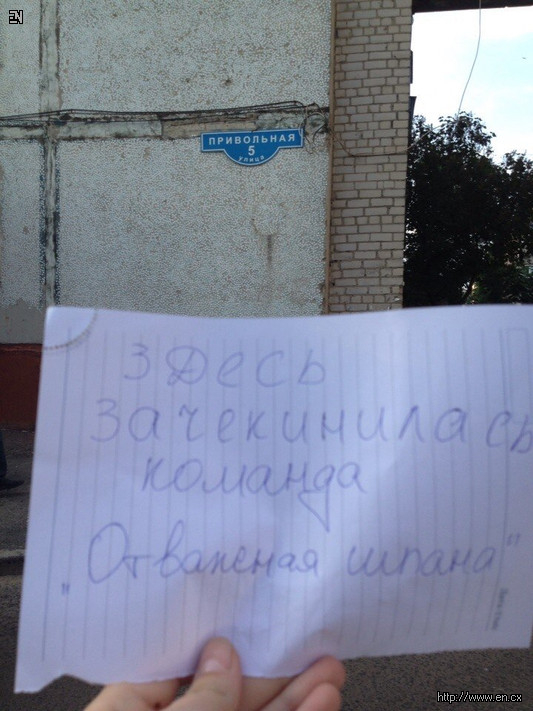 EN
ПРИВОЛЬНАЯ
5
улица
здесь
зачекинилась
команда
„Отважная шпана"
http://www.en.cx